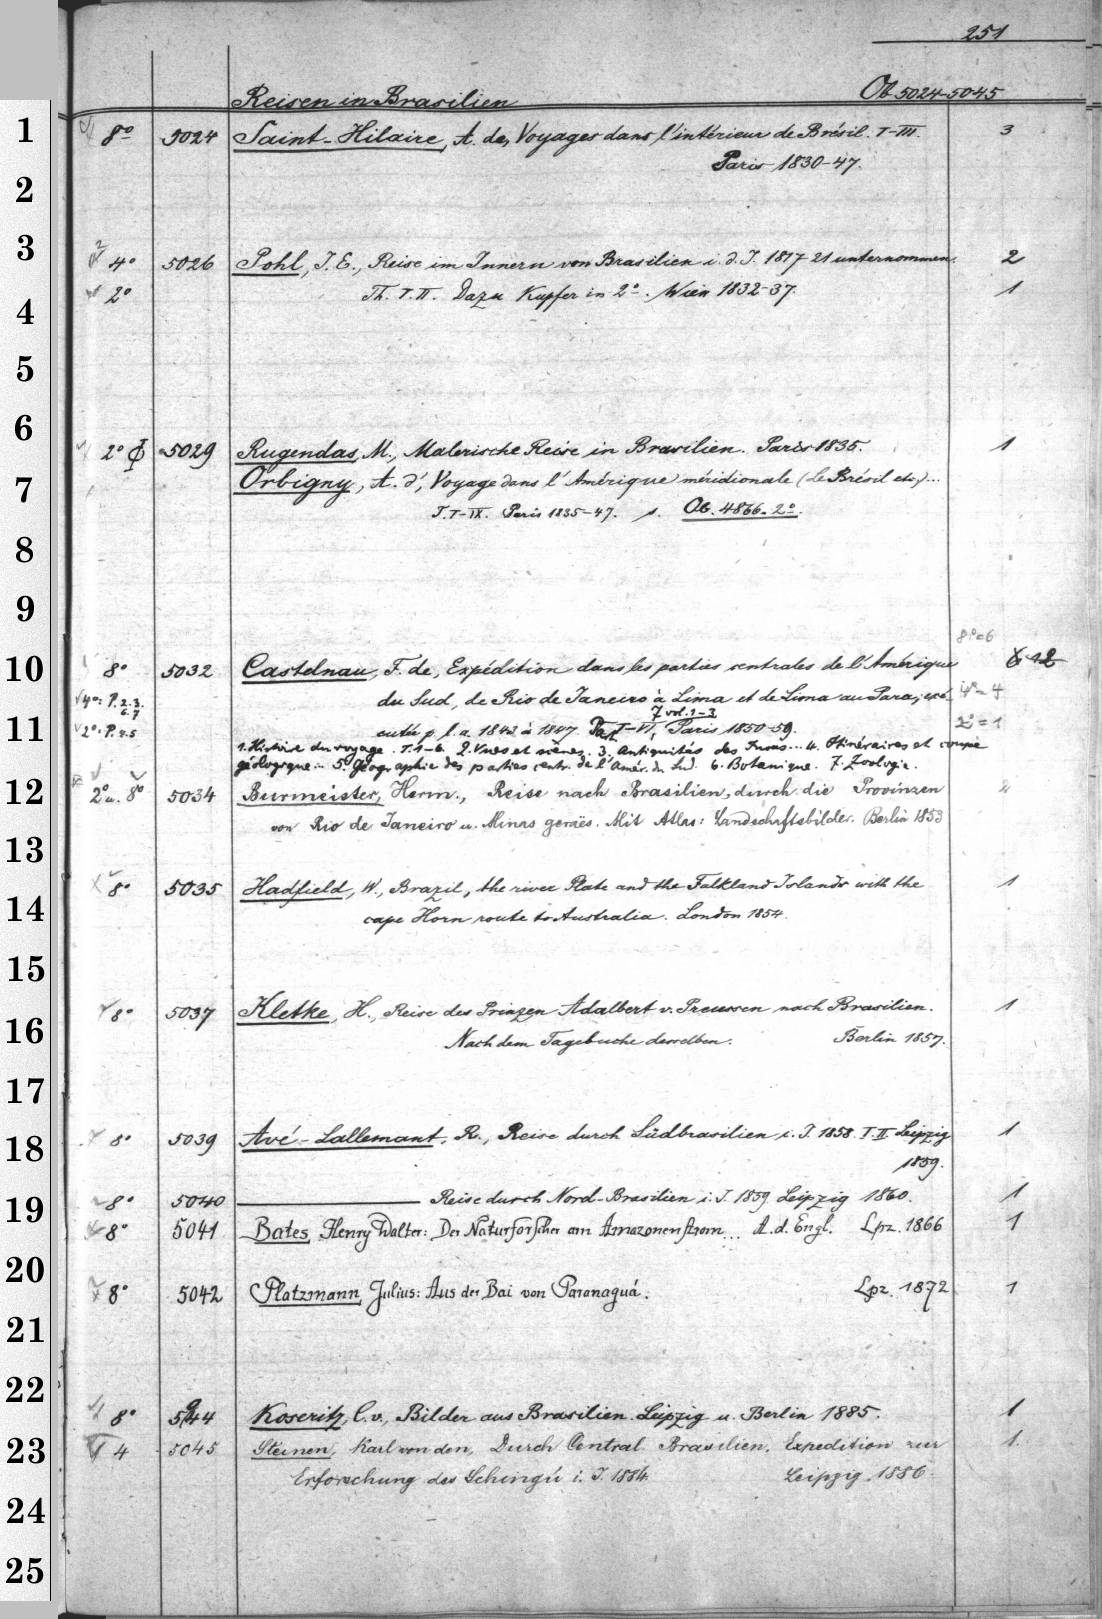 251
Reisen in Brasilien Ob 5024-5045
1 8° 5024 Saint-Hilaire, A. de, Voyages dans l'intérieur de Brésil. T-III. 3
Paris 1830-47.
2
3 2 4° 5026 Pohl, J. E., Reise im Innern von Brasilien i. d. J. 1817-21 unternommen. 2
4 2° Th. I. II. Dazu Kupfer in 2°. Wien 1832-37. 1
5
6 2° 5029 Rugendas, M., Malerische Reise in Brasilien. Paris 1835. 1
7 Orbigny, A. d', Voyage dans l'Amérique méridionale (le Brésil etc.)...
T. I-IX. Paris 1835-47. s. Ob. 4866. 2°.
8
9
8°=6
10 8° 5032 Castelnau, F. de, Expédition dans les parties centrales de l'Amérique 6 12
4°: P. 2. 3. 6. 7 du Sud, de Rio de Janeiro à Lima et de Lima au Para, exé- 4°=4
7 vol. 1-3
11 2°: P. 4. 5 cutée p. l. a. 1843 à 1847. Part. I-VI, Paris 1850-59. 2°=1
1. Histoire du voyage. T. 1-6. 2. Vues et scènes. 3. Antiquités des Incas... 4. Itinéraires et coupe
géologique... 5. Géographie des parties centr. de l'Amér. du Sud. 6. Botanique. 7. Zoologie.
12 2° u. 8° 5034 Burmeister, Herm., Reise nach Brasilien, durch die Provinzen 2
von Rio de Janeiro u. Minas geraës. Mit Atlas: Landschaftsbilder. Berlin 1853
13
14 8° 5035 Hadfield, W., Brazil, the river Plate and the Falkland Islands with the 1
cape Horn route to Australia. London 1854.
15
16 8° 5037 Kletke, H., Reise des Prinzen Adalbert v. Preussen nach Brasilien. 1
Nach dem Tagebuche desselben. Berlin 1857.
17
18 8° 5039 Avé-Lallemant, R., Reise durch Südbrasilien i. J. 1858. I. II Leipzig 1
1859.
19 8° 5040 Reise durch Nord-Brasilien i. J. 1859 Leipzig 1860. 1
8° 5041 Bates, Henry Walter: Der Naturforscher am Amazonenstrom... A. d. Engl. Lpz. 1866 1
20 8° 5042 Platzmann, Julius: Aus der Bai von Paranaguá. Lpz. 1872 1
21
22
8° 5044 Koseritz, C. v., Bilder aus Brasilien. Leipzig u. Berlin 1885. 1
23 4 5045 Steinen, Karl von den, Durch Central Brasilien. Expedition zur 1.
Erforschung des Schingú i. J. 1884. Leipzig. 1886.
24
25